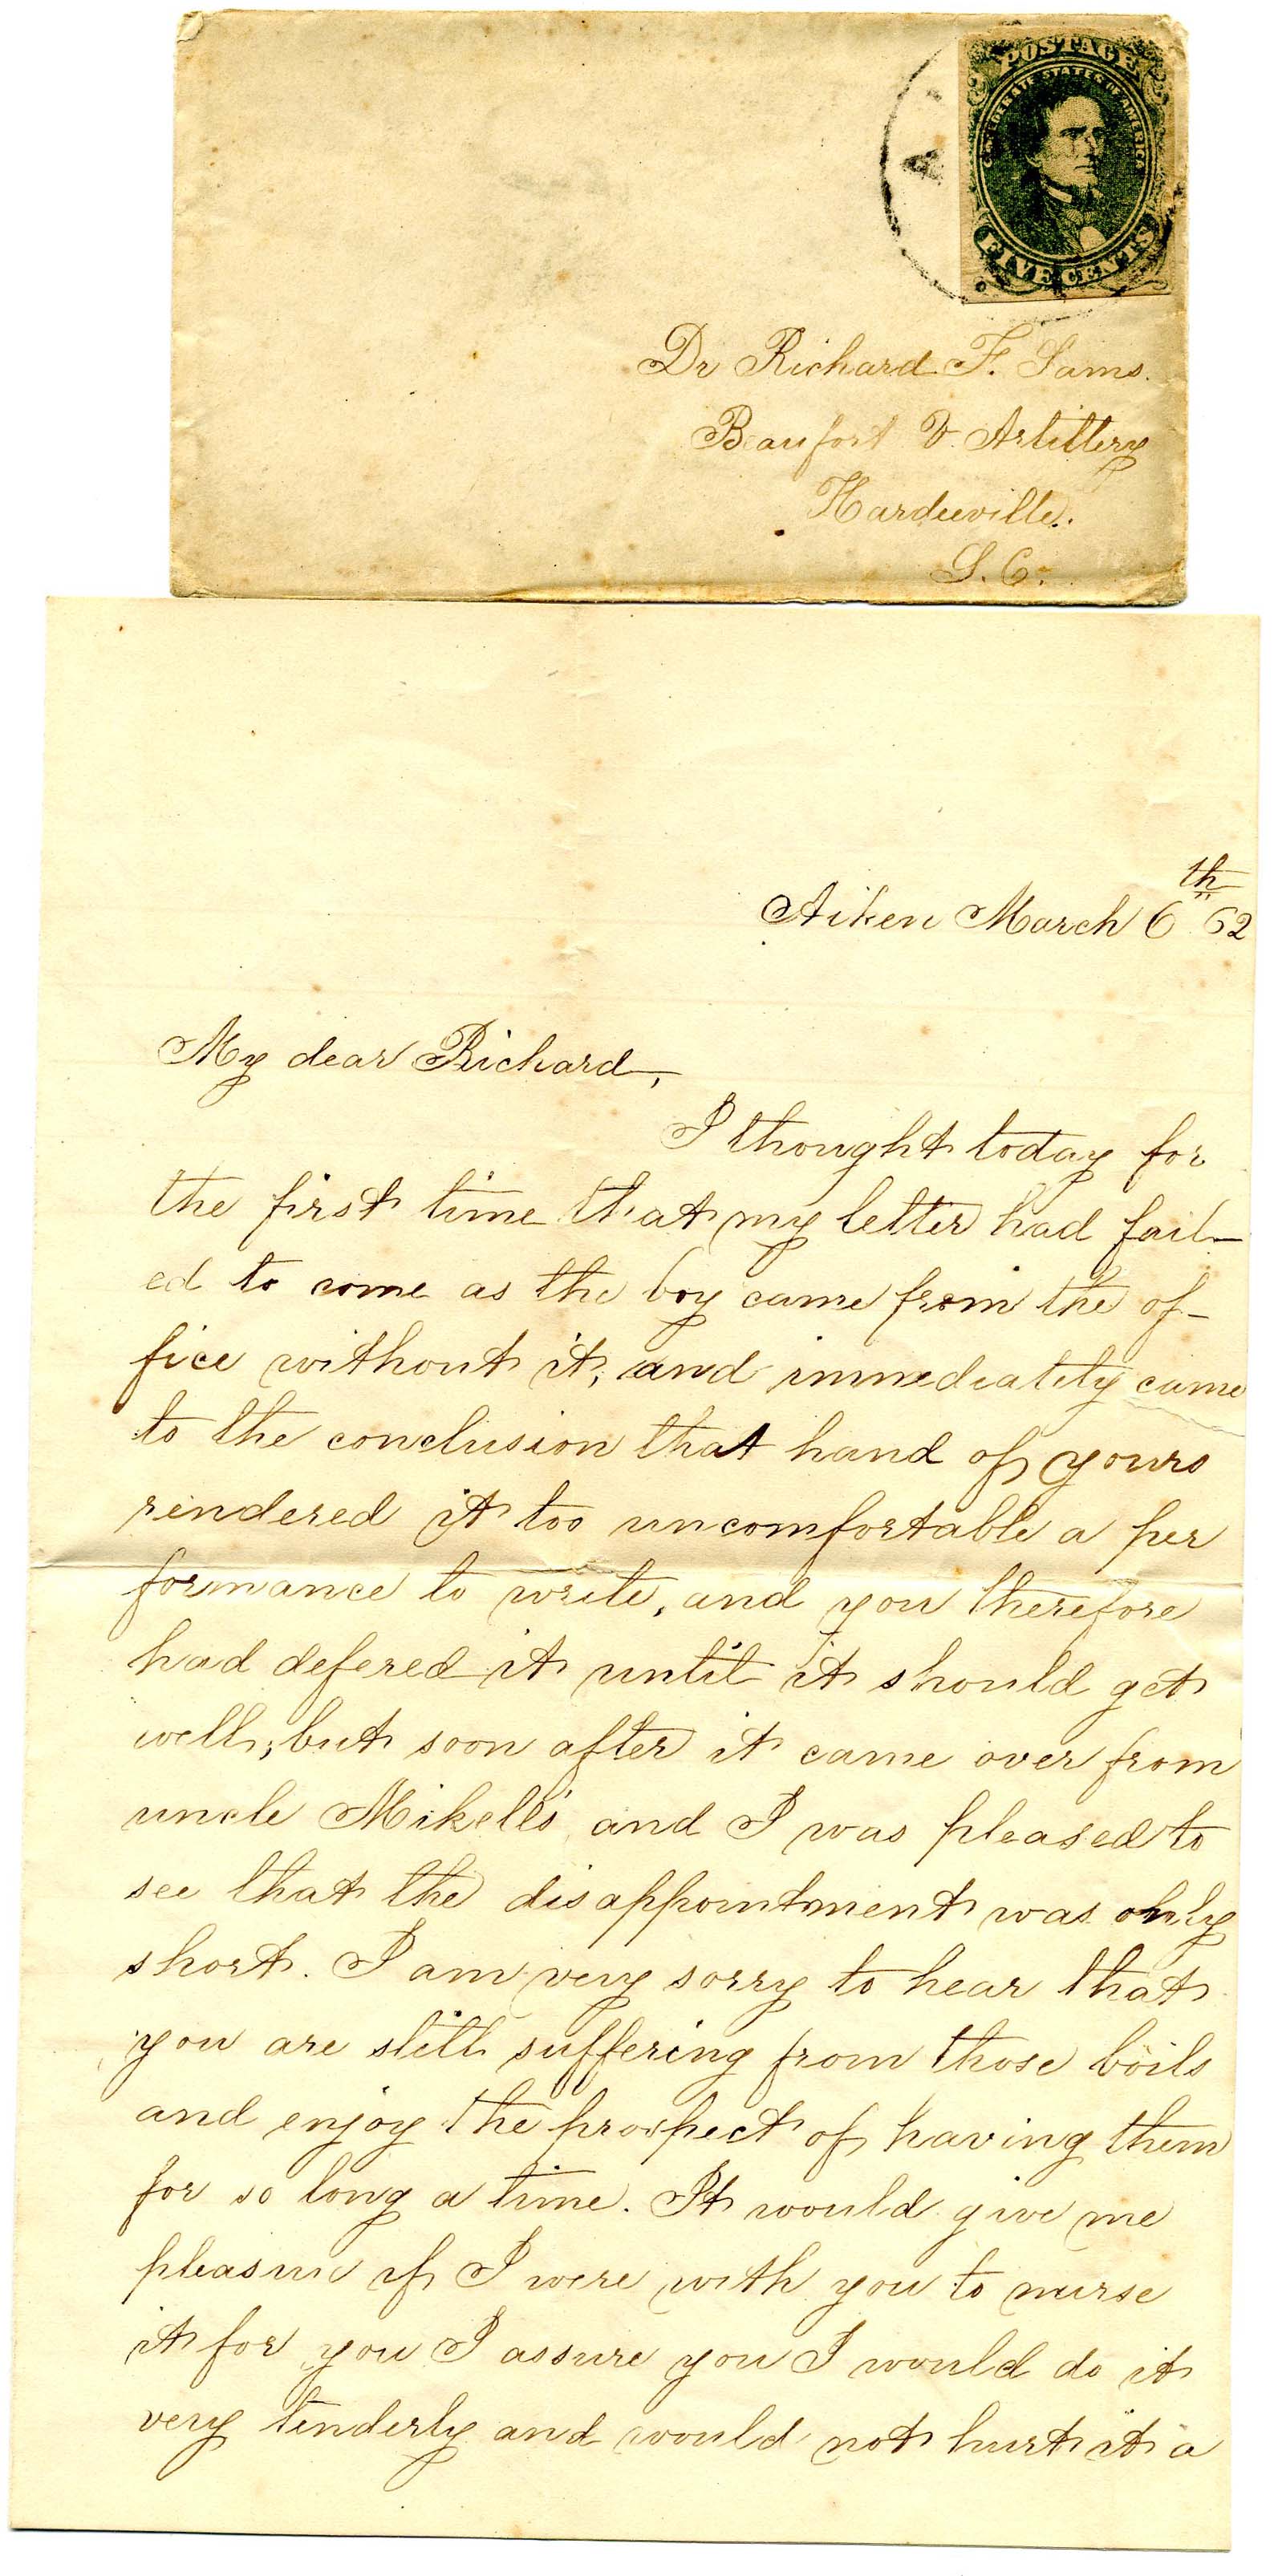 POSTAGE
CONFEDERATE STATES OF AMERICA
FIVE CENTS
A
Dr Richard F. Sams.
Beaufort V. Artillery
Hardeeville.
S. C.
Aiken March 6th 62
My dear Richard,
I thought today for
the first time that my letter had fail-
ed to come as the boy came from the of-
fice without it, and immediately came
to the conclusion that hand of yours
rendered it too uncomfortable a per
formance to write, and you therefore
had defered it until it should get
well; but soon after it came over from
uncle Mikell's and I was pleased to
see that the disappointment was only
short. I am very sorry to hear that
you are still suffering from those boils
and enjoy the prospect of having them
for so long a time. It would give me
pleasure if I were with you to nurse
it for you I assure you I would do it
very tenderly and would not hurt it a